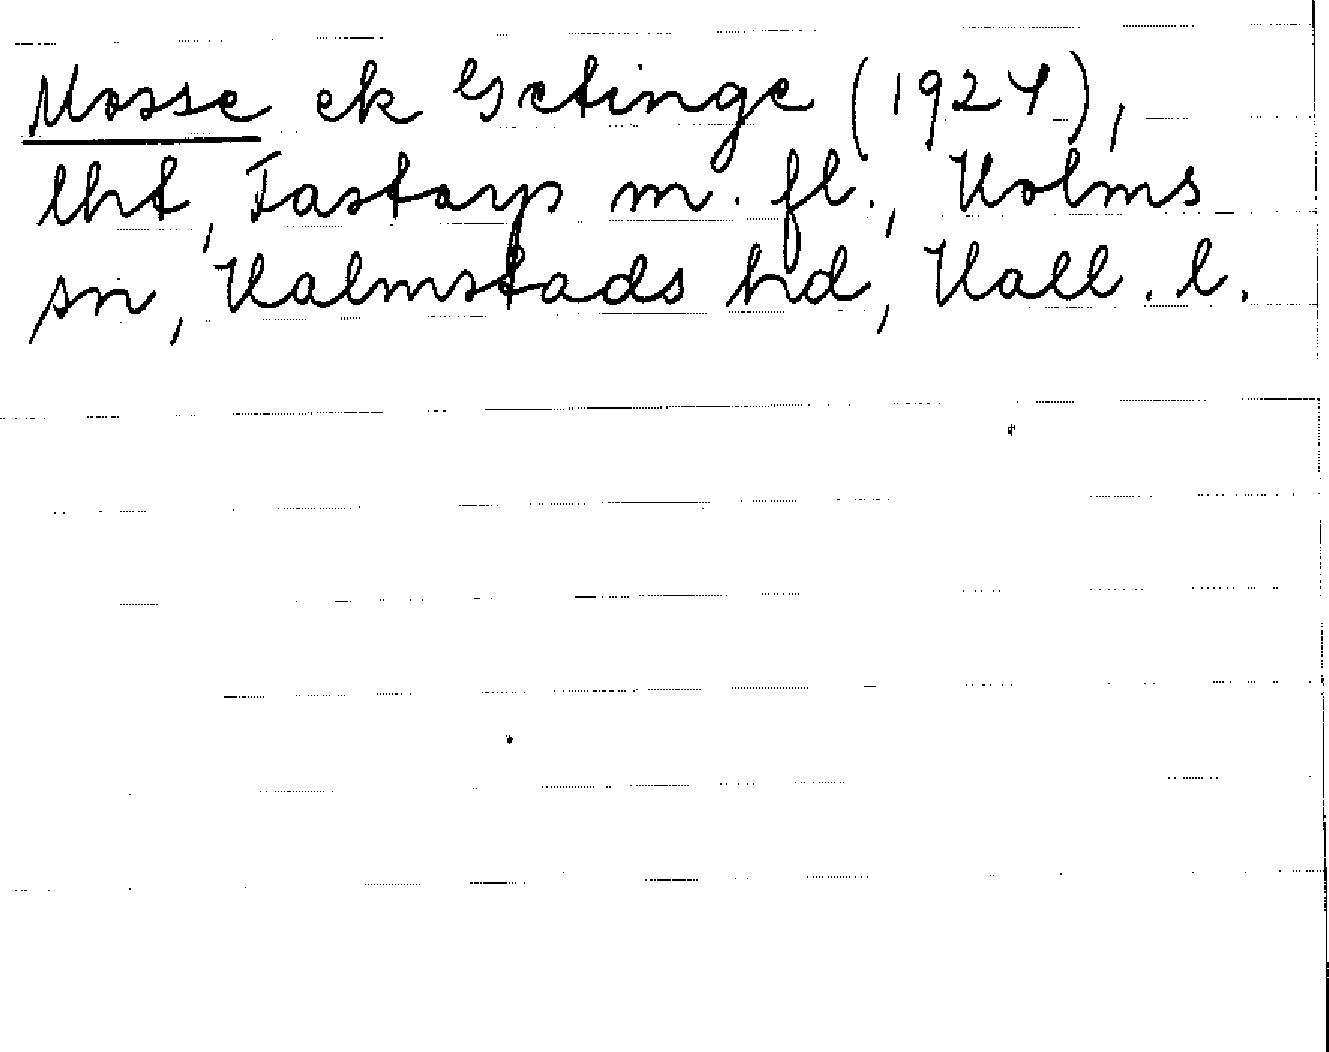 Mosse ek Getinge (1924),
lht, Fastarp m. fl., Holms
sn, Halmstads hd, Hall. l.